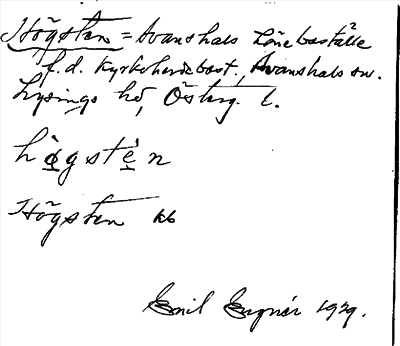 Högsten = Svanshals Löneboställe
f.d. Kyrkoherdebost., Svanshals sn.
Lysings hd, Österg. l.
hø̀gstén
Högsten kb
Emil Engnér 1929.